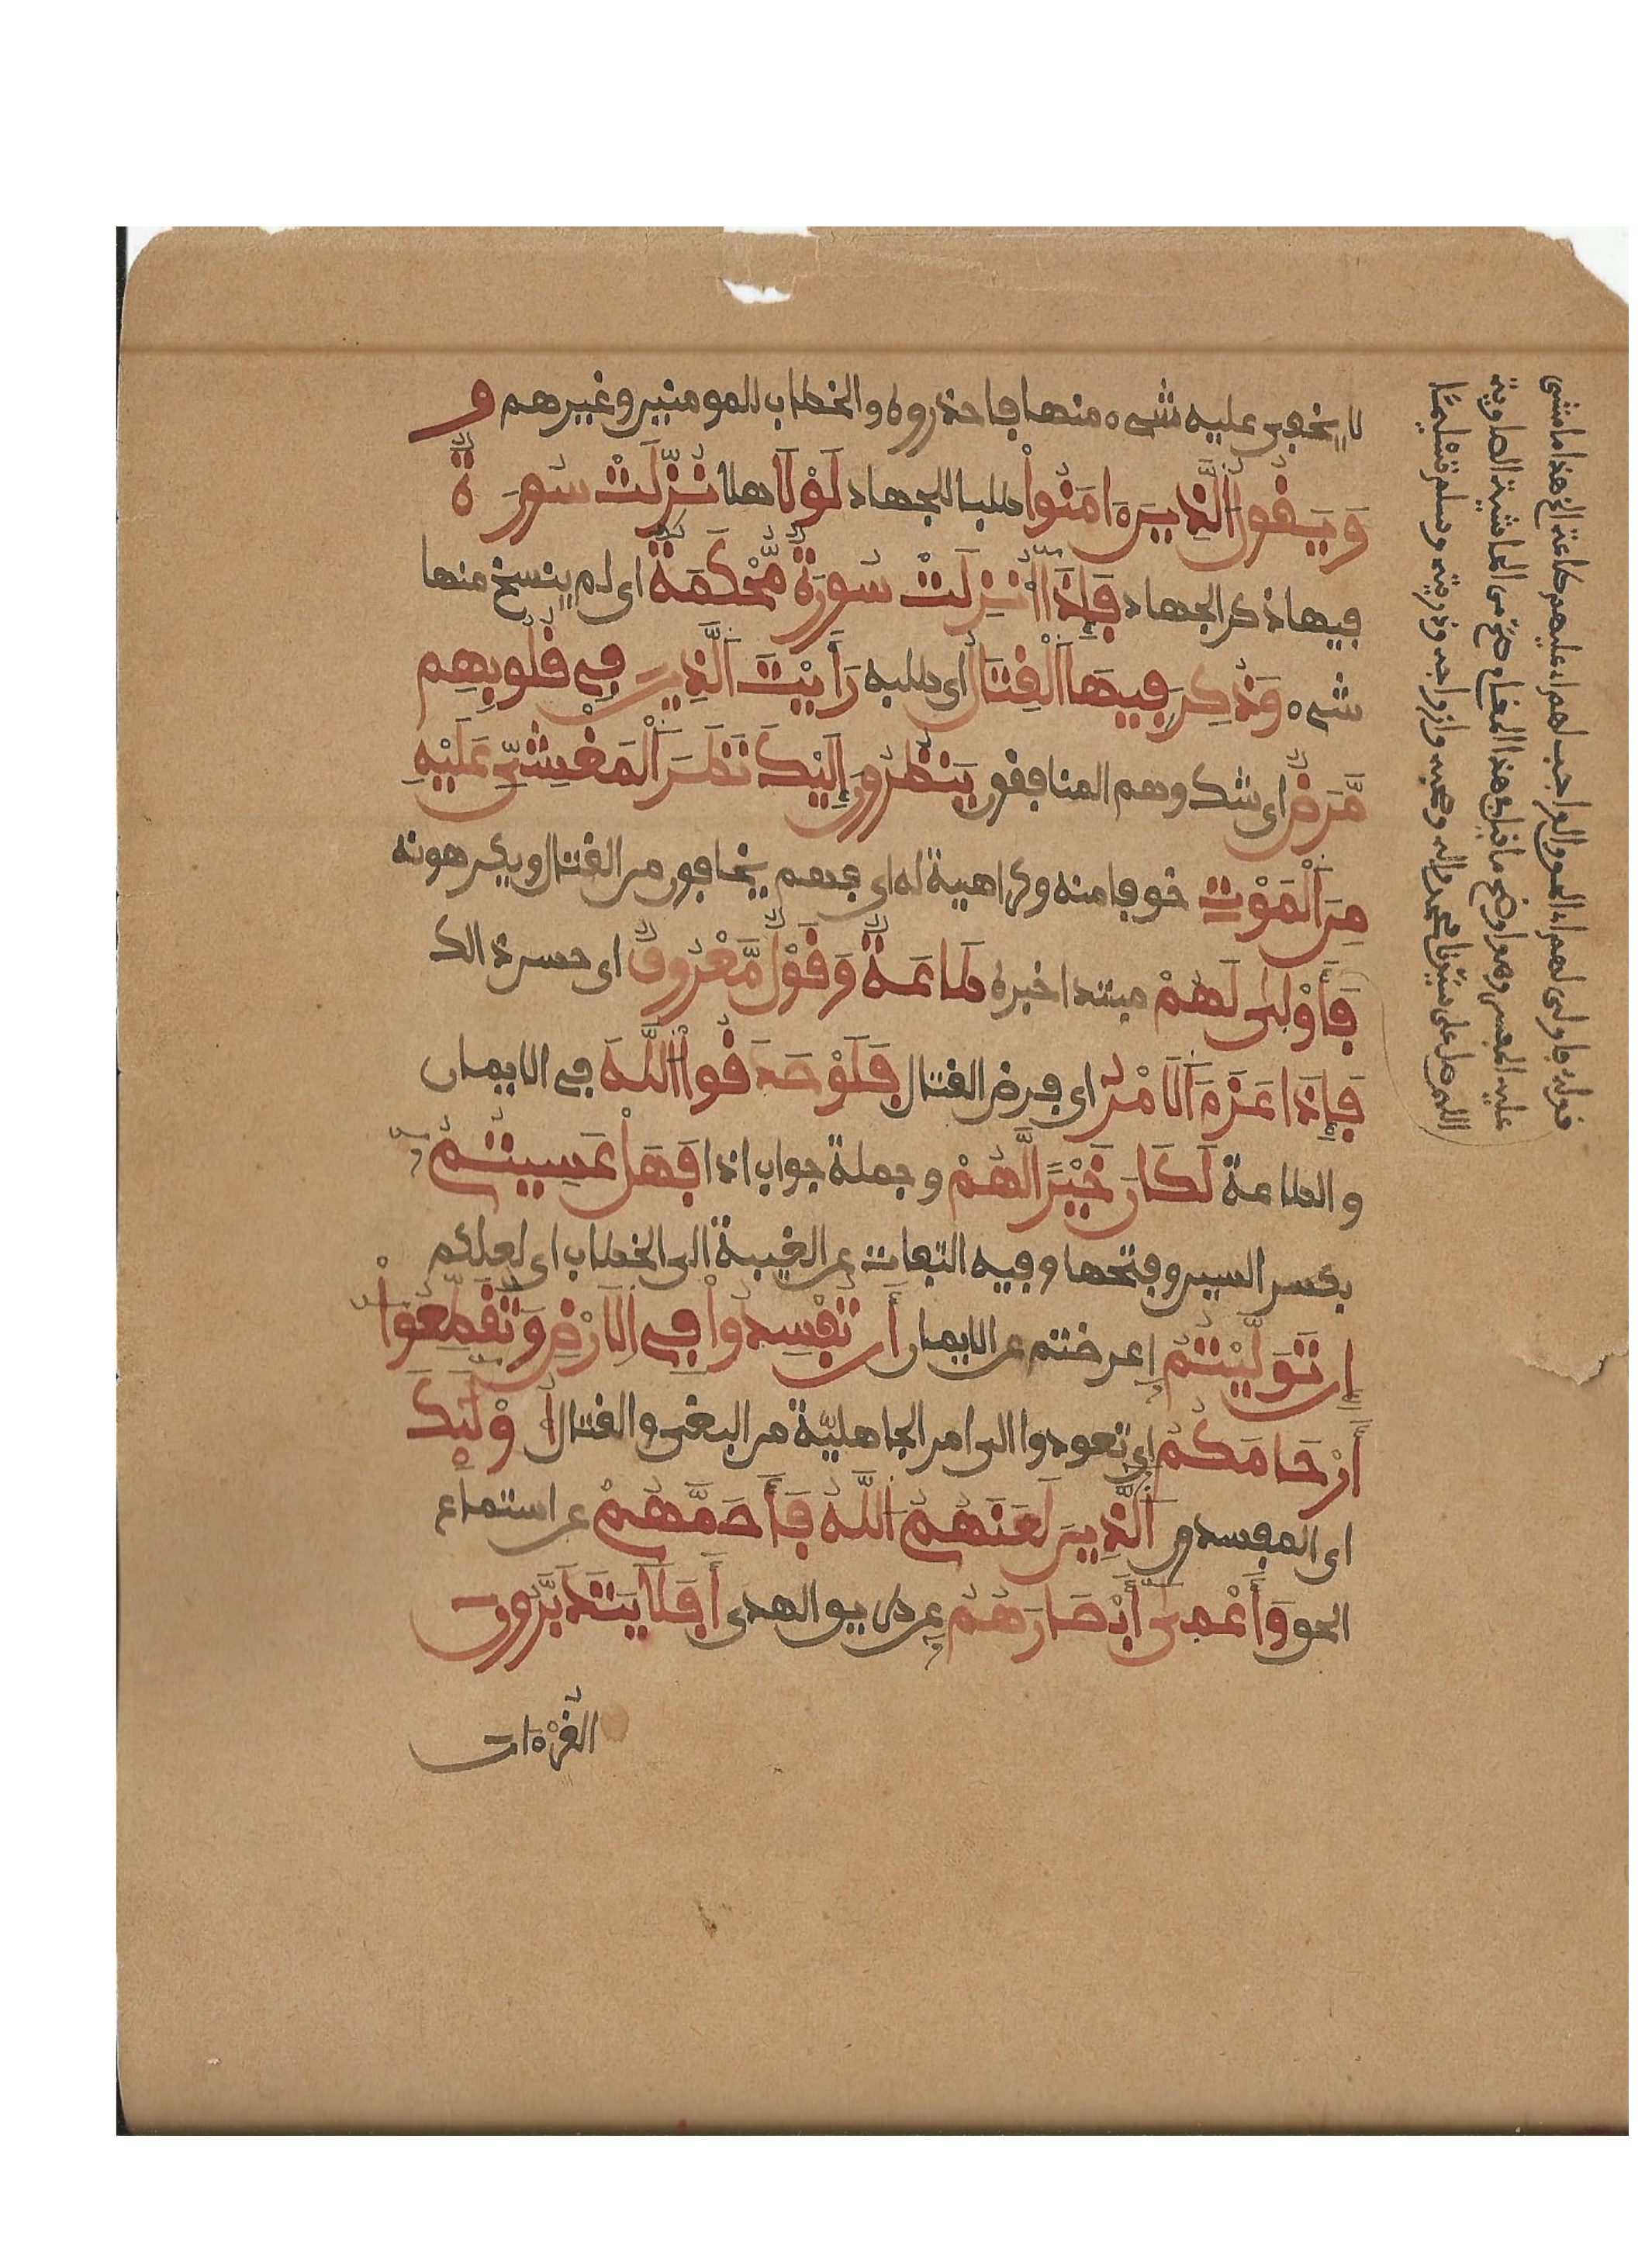 لا يخفى عليه شيء منها فاحذروه والخطاب للمومنين وغيرهم و
وَيَقُولُ الَّذِينَ ءَامَنُواْ طلبا للجهاد لَوْلَا هلا نُزِّلَتْ سُورَةٌ
فيها ذكر الجهاد فَإِذَا أُنزِلَتْ سُورَةٌ مُّحْكَمَةٌ اى لم ينسخ منها
شيء وَذُكِرَ فِيهَا اَلْقِتَالُ اى طلبه رَأَيْتَ اَلَّذِينَ فِي قُلُوبِهِم
مَّرَضٌ اى شك وهم المنافقون يَنظُرُونَ إِلَيْكَ نَظَرَ اَلْمَغْشِيِّ عَلَيْهِ
مِنَ اَلْمَوْتِ خوفا منه وكراهية له اى فهم يخافون من القتال ويكرهونه
فَأَوْلَى لَهُمْ مبتدا خبره طَاعَةٌ وَقَوْلٌ مَّعْرُوفٌ اى حسن لك
فَإِذَا عَزَمَ اَلَامْرُ اى فرض القتال فَلَوْ صَدَقُواْ اللَّهَ في الايمان
والطاعة لَكَانَ خَيْرًا لَّهُمْ وجملة جواب اذا فَهَلْ عَسِيتُمْ
بكسر السين وفتحها وفيه التفات عن الغيبة الى الخطاب اى لعلكم
إِن تَوَلَّيْتُمُ اعرضتم عن الايمان أَن تُفْسِدُواْ فِي اِلَارْضِ وَتُقَطِّعُواْ
أَرْحَامَكُمُ اى تعودوا الى امر الجاهليّة من البغى والقتال أُوْلَئِكَ
اى المفسدون اَلَّذِينَ لَعَنَهُمُ اللَّهُ فَأَصَمَّهُمْ عن استماع
الحق وَأَعْمَى أَبْصَارَهُمُ عن طريق الهدى أَفَلَا يَتَدَبَّرُونَ
القُرْءَان
قوله فاولى لهم
اللهم صل على سيدنا محمد واله وصحبه وازواجه وذريته وسلم تسليمًا